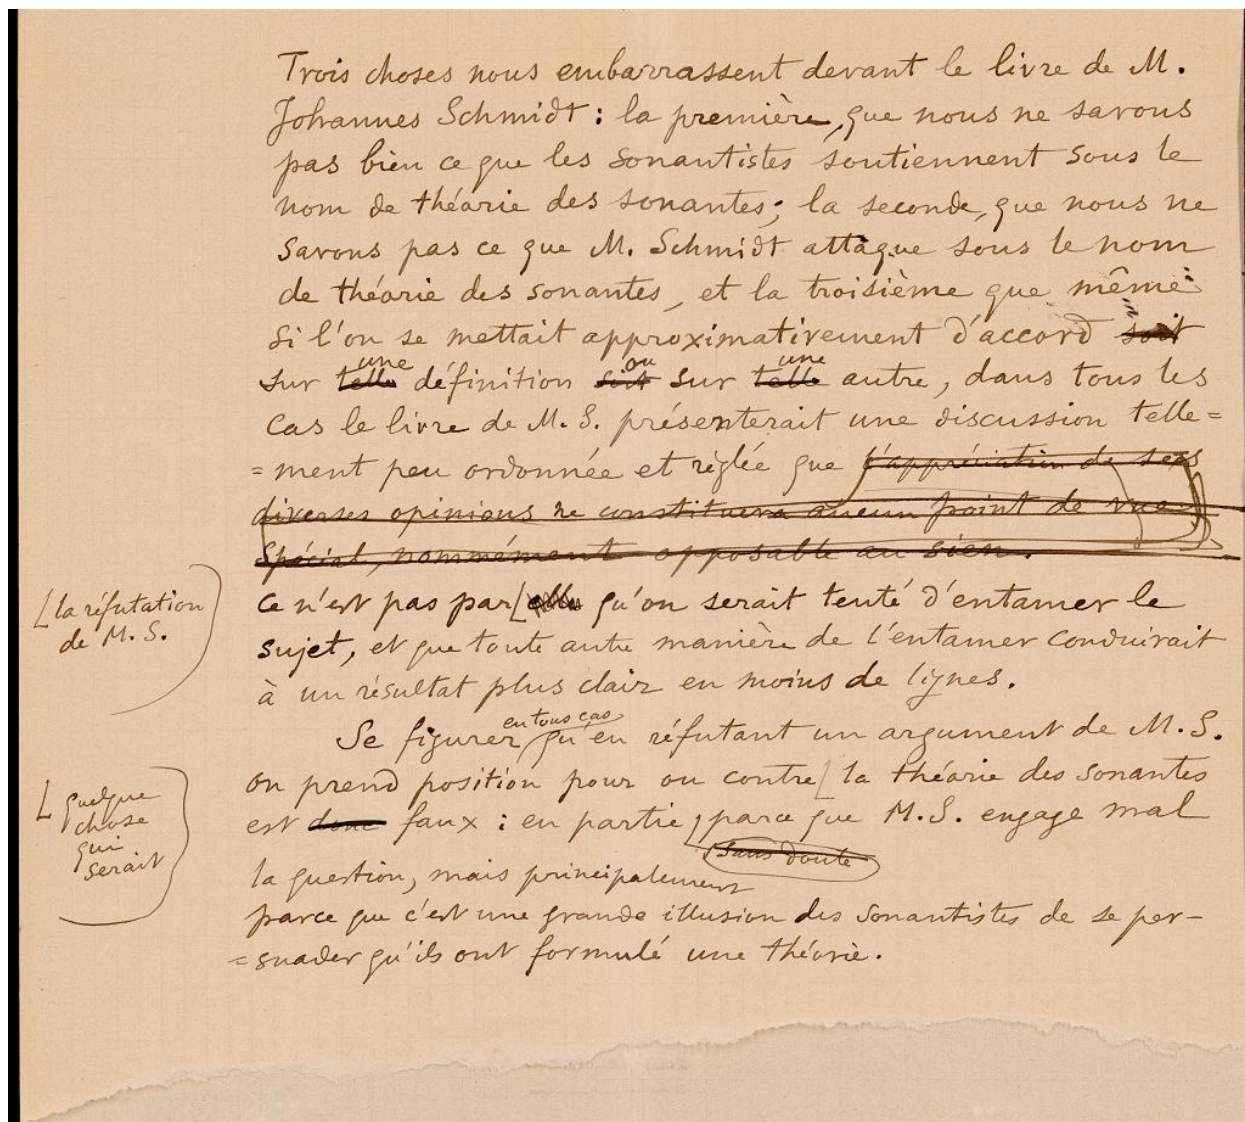 Trois choses nous embarrassent devant le livre de M.
Johannes Schmidt : la première, que nous ne savons
pas bien ce que les sonantistes soutiennent sous le
nom de théorie des sonantes ; la seconde, que nous ne
savons pas ce que M. Schmidt attaque sous le nom
de théorie des sonantes, et la troisième que même
si l'on se mettait approximativement d'accord soit
une ou une
sur telle définition soit sur telle autre, dans tous les
cas le livre de M. S. présenterait une discussion telle=
=ment peu ordonnée et réglée que l'appréciation de ses
diverses opinions ne constituera aucun point de vue
spécial, nommément opposable au sien.
[la réfutation
de M. S.
ce n'est pas par [elle qu'on serait tenté d'entamer le
sujet, et que toute autre manière de l'entamer conduirait
à un résultat plus clair en moins de lignes.
en tous cas
Se figurer qu'en réfutant un argument de M. S.
[quelque
chose
qui
serait
on prend position pour ou contre [ la théorie des sonantes
est donc faux : en partie, parce que M. S. engage mal
sans doute
la question, mais principalement
parce que c'est une grande illusion des sonantistes de se per-
=suader qu'ils ont formulé une théorie.